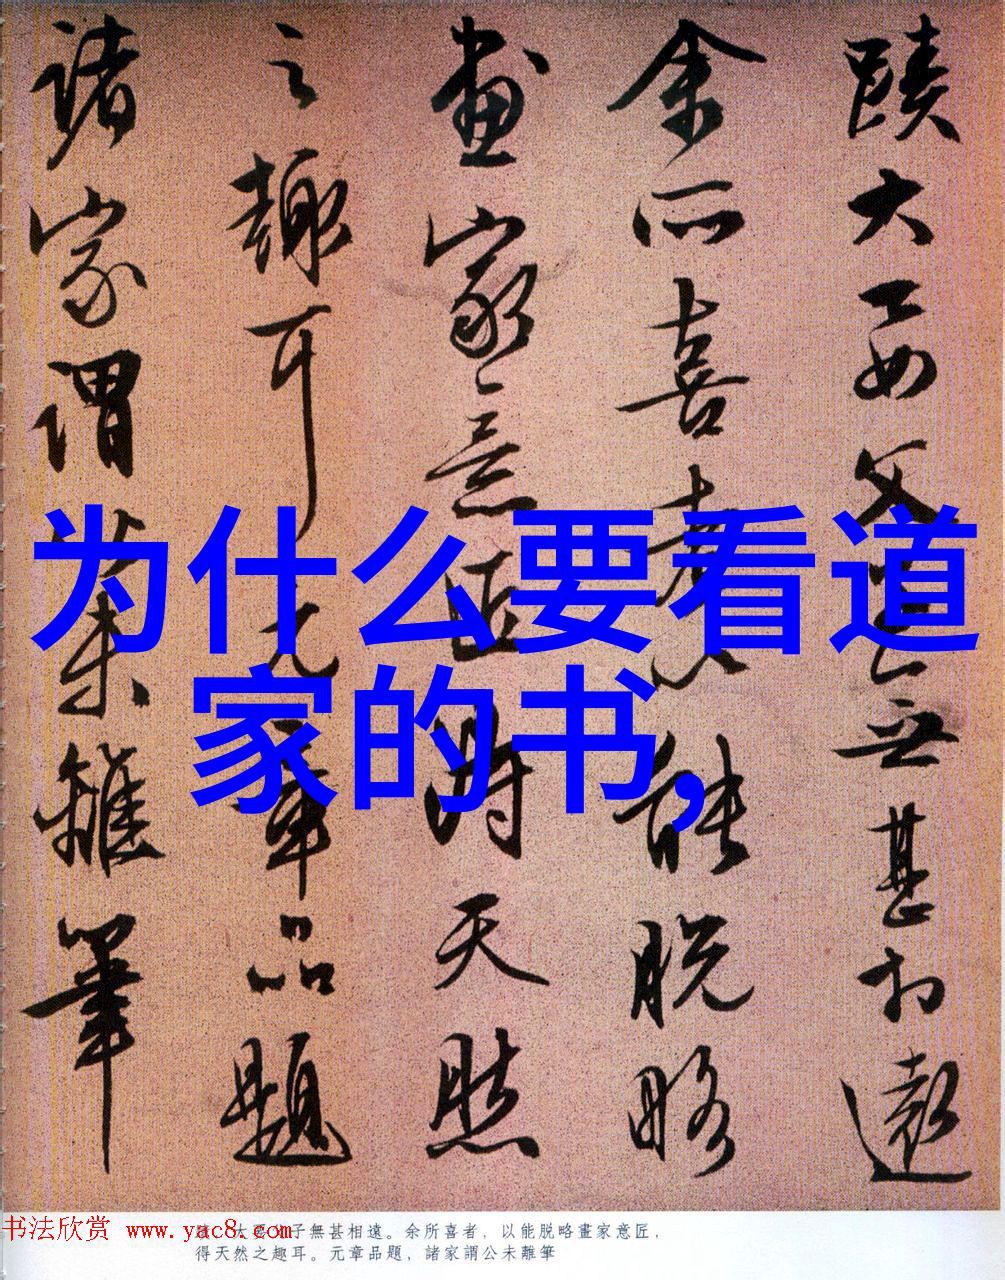 蹟大要父子無甚相遠
余所喜者以能脱略
畫家意匠得天然
之趣耳元章品題
諸家謂公未離筆
为什么要看道
家的书,
书法欣赏 www.yac8.com
大要父子無甚相遠。余所喜者，以能脱略畫家意匠，
得天然之趣耳。元章品題，諸家謂公未離筆